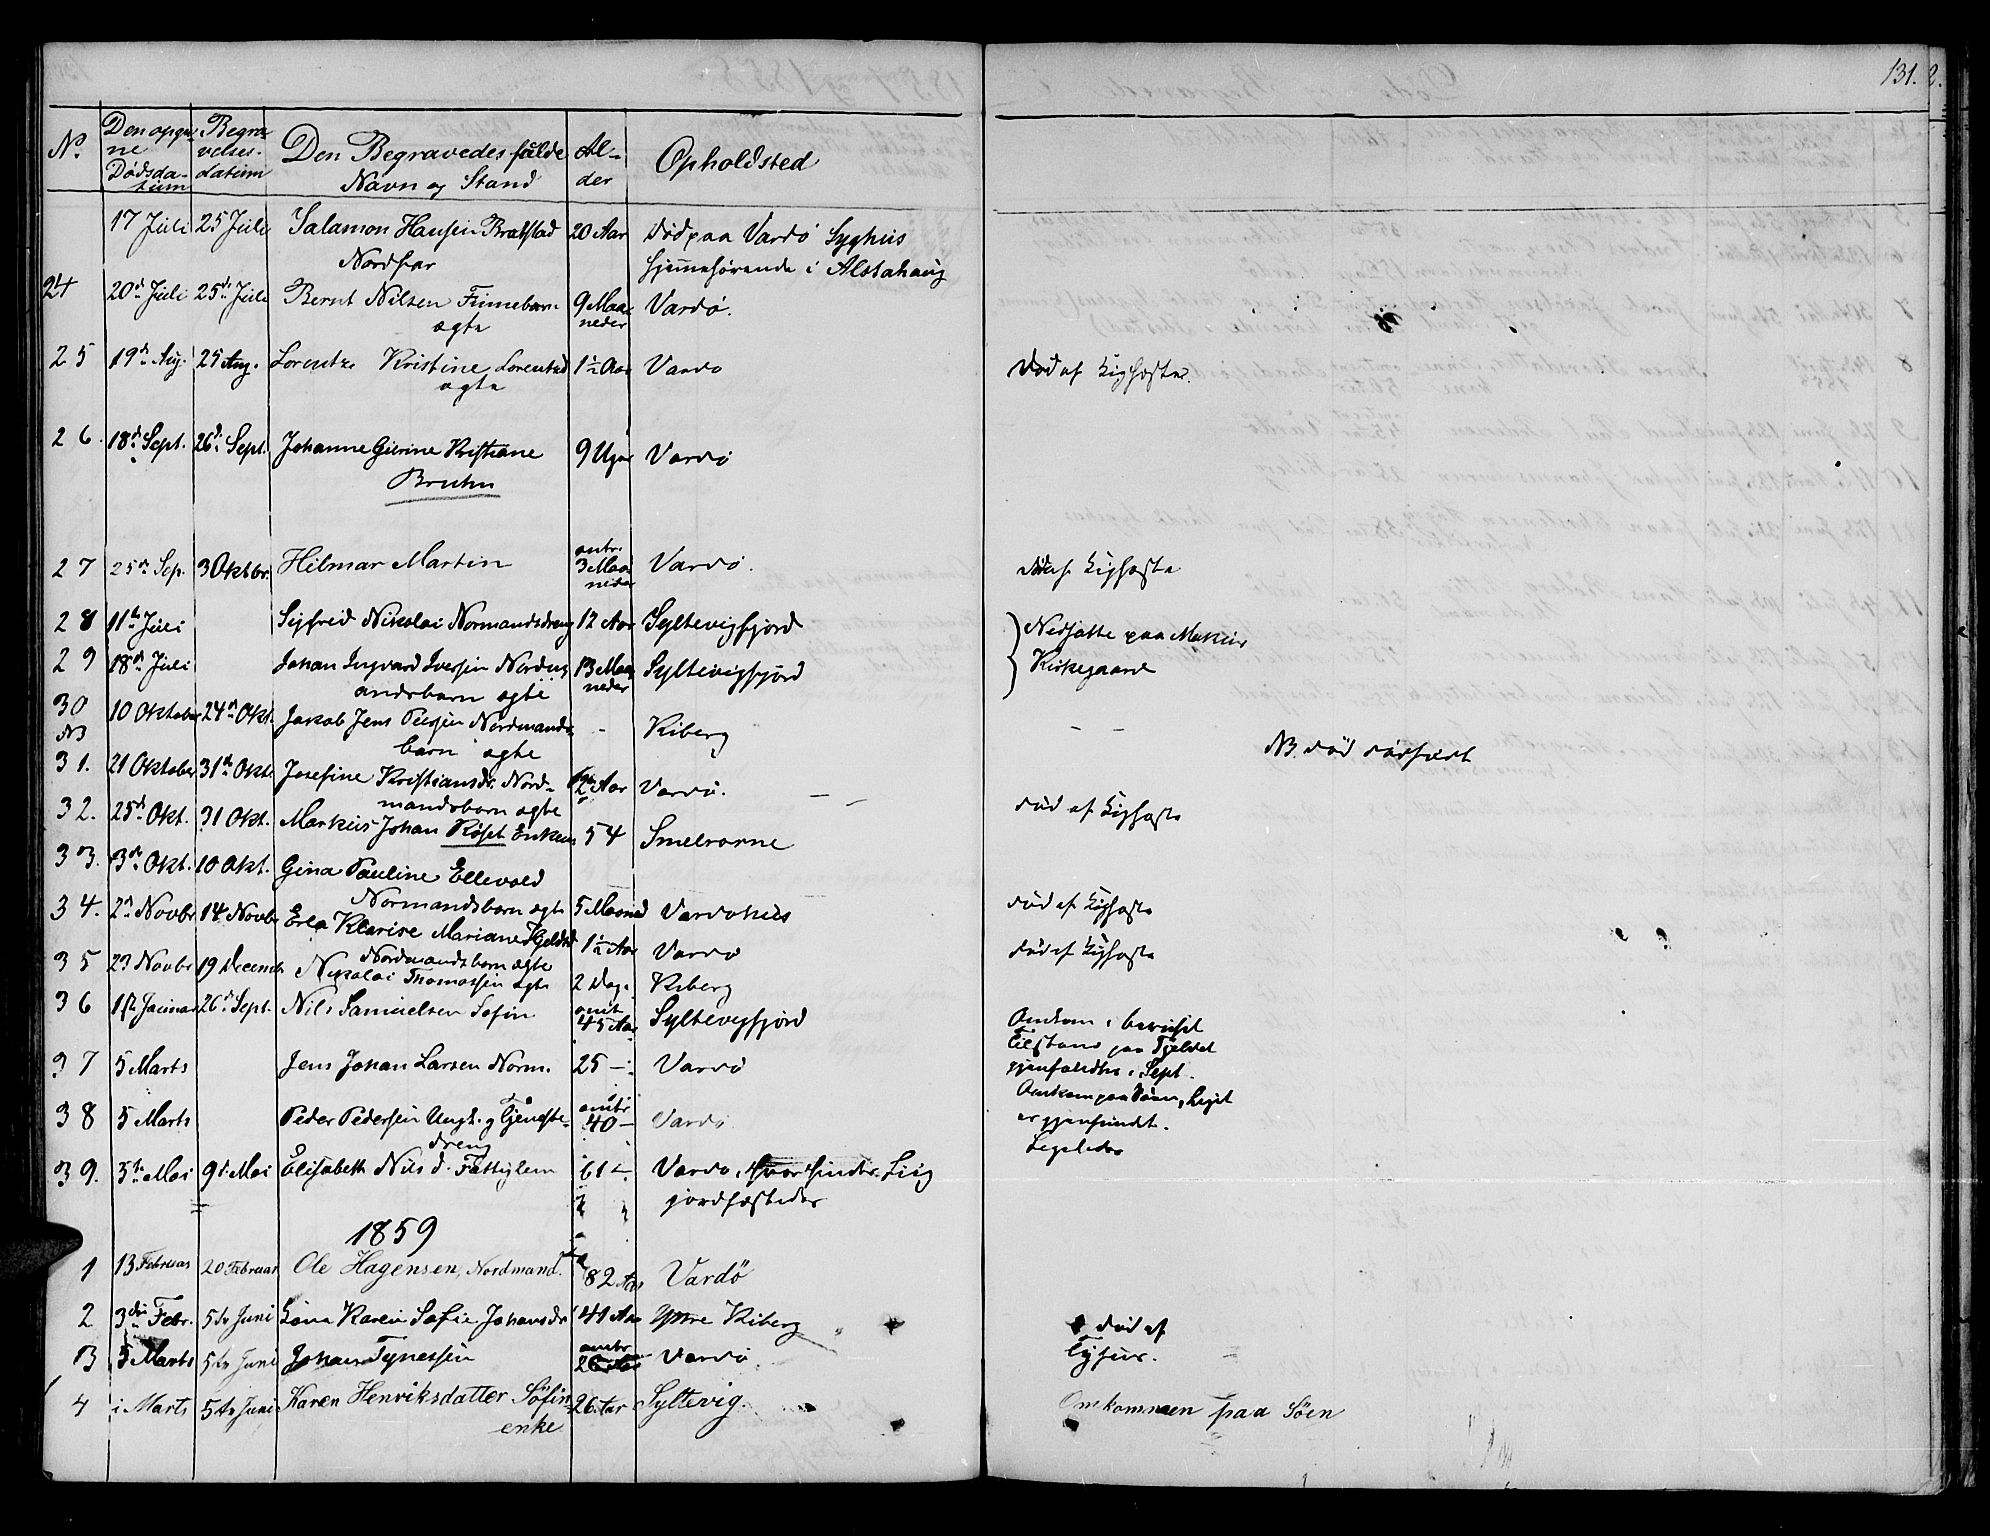 131. 2.
No. Den opgivne Dødsdatum Begravelsesdatum Den Begravedes fulde Navn og Stand Alder Opholdsted
17 Juli 25 Juli Salamon Hansen Bratstad 20 Aar død paa Vardö Syghus
Nordfar hjemehörende i Alstahaug
24 20de Juli 25de Juli Bernt Nilsen Finnebarn 9 Maaneder Vardö.
ægte
25 19de Aug. 25 Aug. Lorentze Kristine Lorentsd 1½ Aar Vardö Død af Kighoste.
ægte
26. 18de Sept. 26de Sept. Johanne Gurine Kristiane 9 Uger Vardö
Bruhn
27 25de Sep. 3 Oktbr. Hilmar Martin omtr. 3 Maaneder Vardö. Død af Kighoste
28 11te Juli Sigfrid Nikolai Normandsdreng 12 Aar Syltevigfjord Nedsatte paa Makeur
29 18de Juli Johan Ingvard Iversen Nordm 13 Maaneder Syltevigfjord Kirkegaard
andsbarn ægte
30 10 Oktober 24de Okt. Jakob Jens Nordmands - Kiberg
NB barn ægte NB. død
31. 21 Oktober 31te Okt. Josefine Kristiansdr. Nord- 12 Aar Vardö.
mandsbarn ægte
32. 25de Okt. 31 Okt. Markus Johan Röset Enkem 54 Smelrorne død af Kighoste
33. 3de Okt. 10 Okt. Gina Pauline Ellevold
Normandsbarn ægte
34. 2de Novbr 14 Novbr Erla Klarise Mariane Hjeldsd 5 Maaned Vardöhus død af Kighoste
Nordmandsbarn ægte 1½ Aar Vardö død af Kighoste
35 23 Novbr 19 Decembr Nikolai Thomassen ægte 2 Dage Kiberg
36 Januar 26de Sept. Nils Samuelsen Søfin omtr 45 Aar Syltevigfjord Omkom i beruset
Tilstand paa Fjeldet
gjenfandtes i Sept.
37 5 Marts Jens Johan Larsen Norm. 25 - Vardö Omkom paa Søen, Liget
38 5 Marts Peder Pedersen Ungk. og Tjeneste- omtr 40 - Vardö er gjenfundet.
dreng
39. 5te Mai 9de Mai Elisabeth Nils d. Fattiglem 61 - Vardö, hvor hendes Liig
jordfæstedes
1859
1 13 Februar 20 Februar Ole Hagensen, Nordmand. 82 Aar Vardö
2 3die Febr. 5te Juni Lona Karen Sofie Johansdr 41 Aar Ytre Kiberg død af
3 5 Marts 5te Juni Johan Tynessen omtr 26 Aar Vardö Tyfus.
4 i Marts 5te Juni Karen Henriksdatter Söfin 26 Aar Syltevig. Omkommen paa Söen
enke